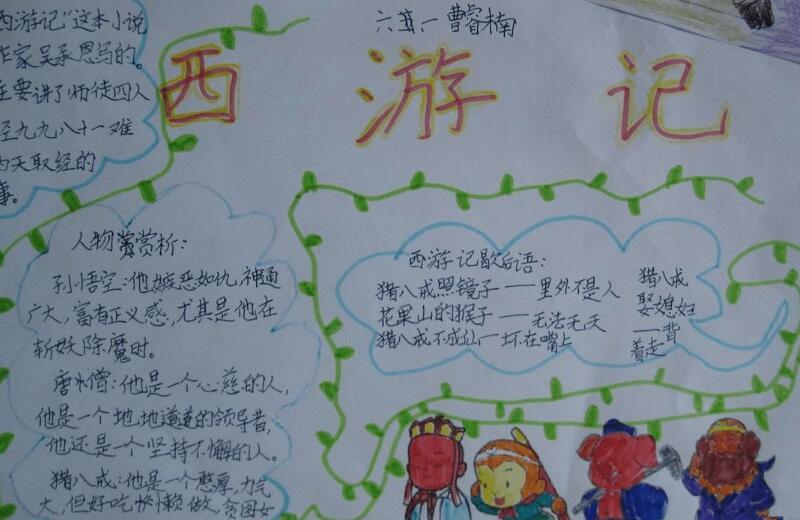 西游记"这本小说
作家吴承恩写的。
主要讲了师徒四人
经九九八十一难
西天取经的
事。
六莲一 曹睿楠
西游记
人物赏析：
孙悟空：他嫉恶如仇，神通
广大，富有正义感，尤其是他在
斩妖除魔时。
唐僧：他是一个心慈的人，
他是一个地地道道的领导者，
他还是一个坚持不懈的人。
猪八戒：他是一个憨厚，力气
大，但好吃懒做，贪图女
西游记歇后语：
猪八戒照镜子——里外不是人
花果山的猴子——无法无天
猪八戒不成仙—坏在嘴上
猪八戒
娶媳妇
—背
着走